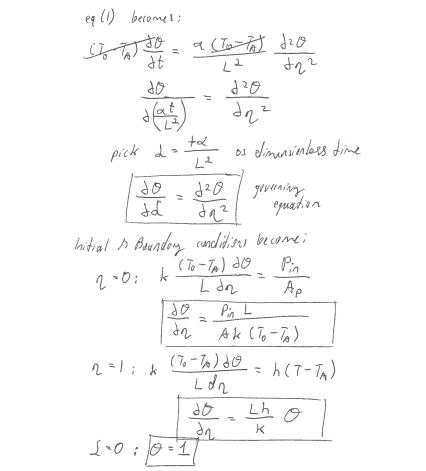 eq (1) becomes:
(T₀ - T_A) ∂θ/∂t = α (T₀ - T_A)/L² ∂²θ/∂η²
∂θ/∂(αt/L²) = ∂²θ/∂η²
pick L = tα/L² as dimensionless time
∂θ/∂L = ∂²θ/∂η² governing equation
Initial & Boundary conditions become:
η = 0: k (T₀ - T_A) ∂θ/L ∂η = Pin/A_p
∂θ/∂η = Pin L/A k (T₀ - T_A)
η = 1: k (T₀ - T_A) ∂θ/L dη = h(T - T_A)
∂θ/∂η = Lh/k θ
L = 0: θ = 1